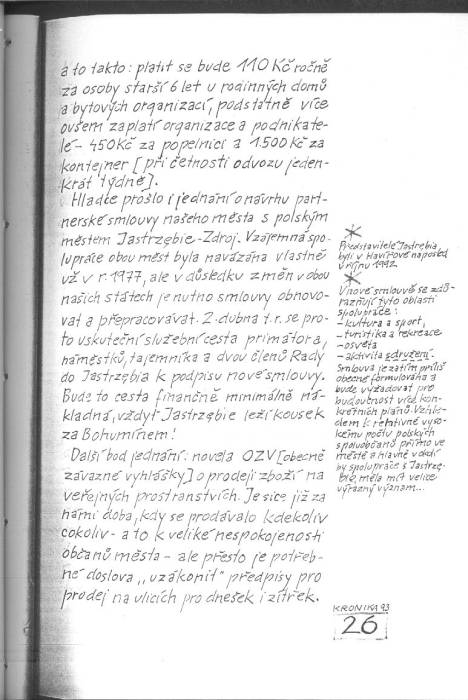 a to takto: platit se bude 110 Kč ročně
za osoby starší 6 let u rodinných domů
a bytových organizací, podstatně více
ovšem zaplatí organizace a podnikate-
lé - 450 Kč za popelnici a 1.500 Kč za
kontejner [při četnosti odvozu jeden-
krát týdně].
Hladce prošlo i jednání o návrhu part-
nerské smlouvy našeho města s polským
městem Jastrzębie-Zdroj. Vzájemná spo-
lupráce obou měst byla navázána vlastně
už v r. 1977, ale v důsledku změn v obou
našich státech je nutno smlouvy obnovo-
vat a přepracovávat. 2. dubna t.r. se pro-
to uskuteční služební cesta primátora,
náměstků, tajemníka a dvou členů Rady
do Jastrzębia k podpisu nové smlouvy.
Bude to cesta finančně minimálně ná-
kladná, vždyť Jastrzębie leží kousek
za Bohumínem!
Další bod jednání: novela OZV [obecně
závazné vyhlášky] o prodeji zboží na
veřejných prostranstvích. Je sice již za
námi doba, kdy se prodávalo kdekoliv
cokoliv - a to k veliké nespokojenosti
občanů města - ale přesto je potřeb-
né doslova „uzákonit" předpisy pro
prodej na ulicích pro dnešek i zítřek.
*
Představitelé Jastrzębia
byli v Havířově naposled
v říjnu 1992
*
V nové smlouvě se zdů-
razňují tyto oblasti
spolupráce:
- kultura a sport,
- turistika a rekreace
- osvěta
- aktivita sdružení.
Smlouva je zatím příliš
obecně formulována a
bude vyžadovat pro
budoucnost více kon-
krétních plánů. Vzhle-
dem k relativně vyso-
kému počtu polských
spoluobčanů přímo ve
městě a hlavně v okolí
by spolupráce s Jastrzę-
biem měla mít velice
výrazný význam...
KRONIKA 93
26